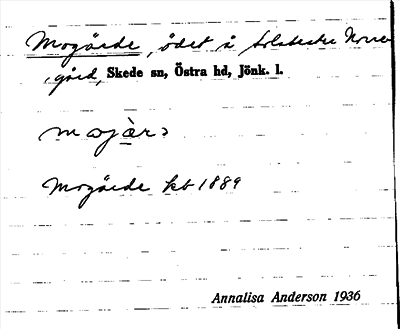 Mogärde, ödet å Norre
gård, Skede sn, Östra hd, Jönk. l.
Mogärde kb 1889
Annalisa Anderson 1936